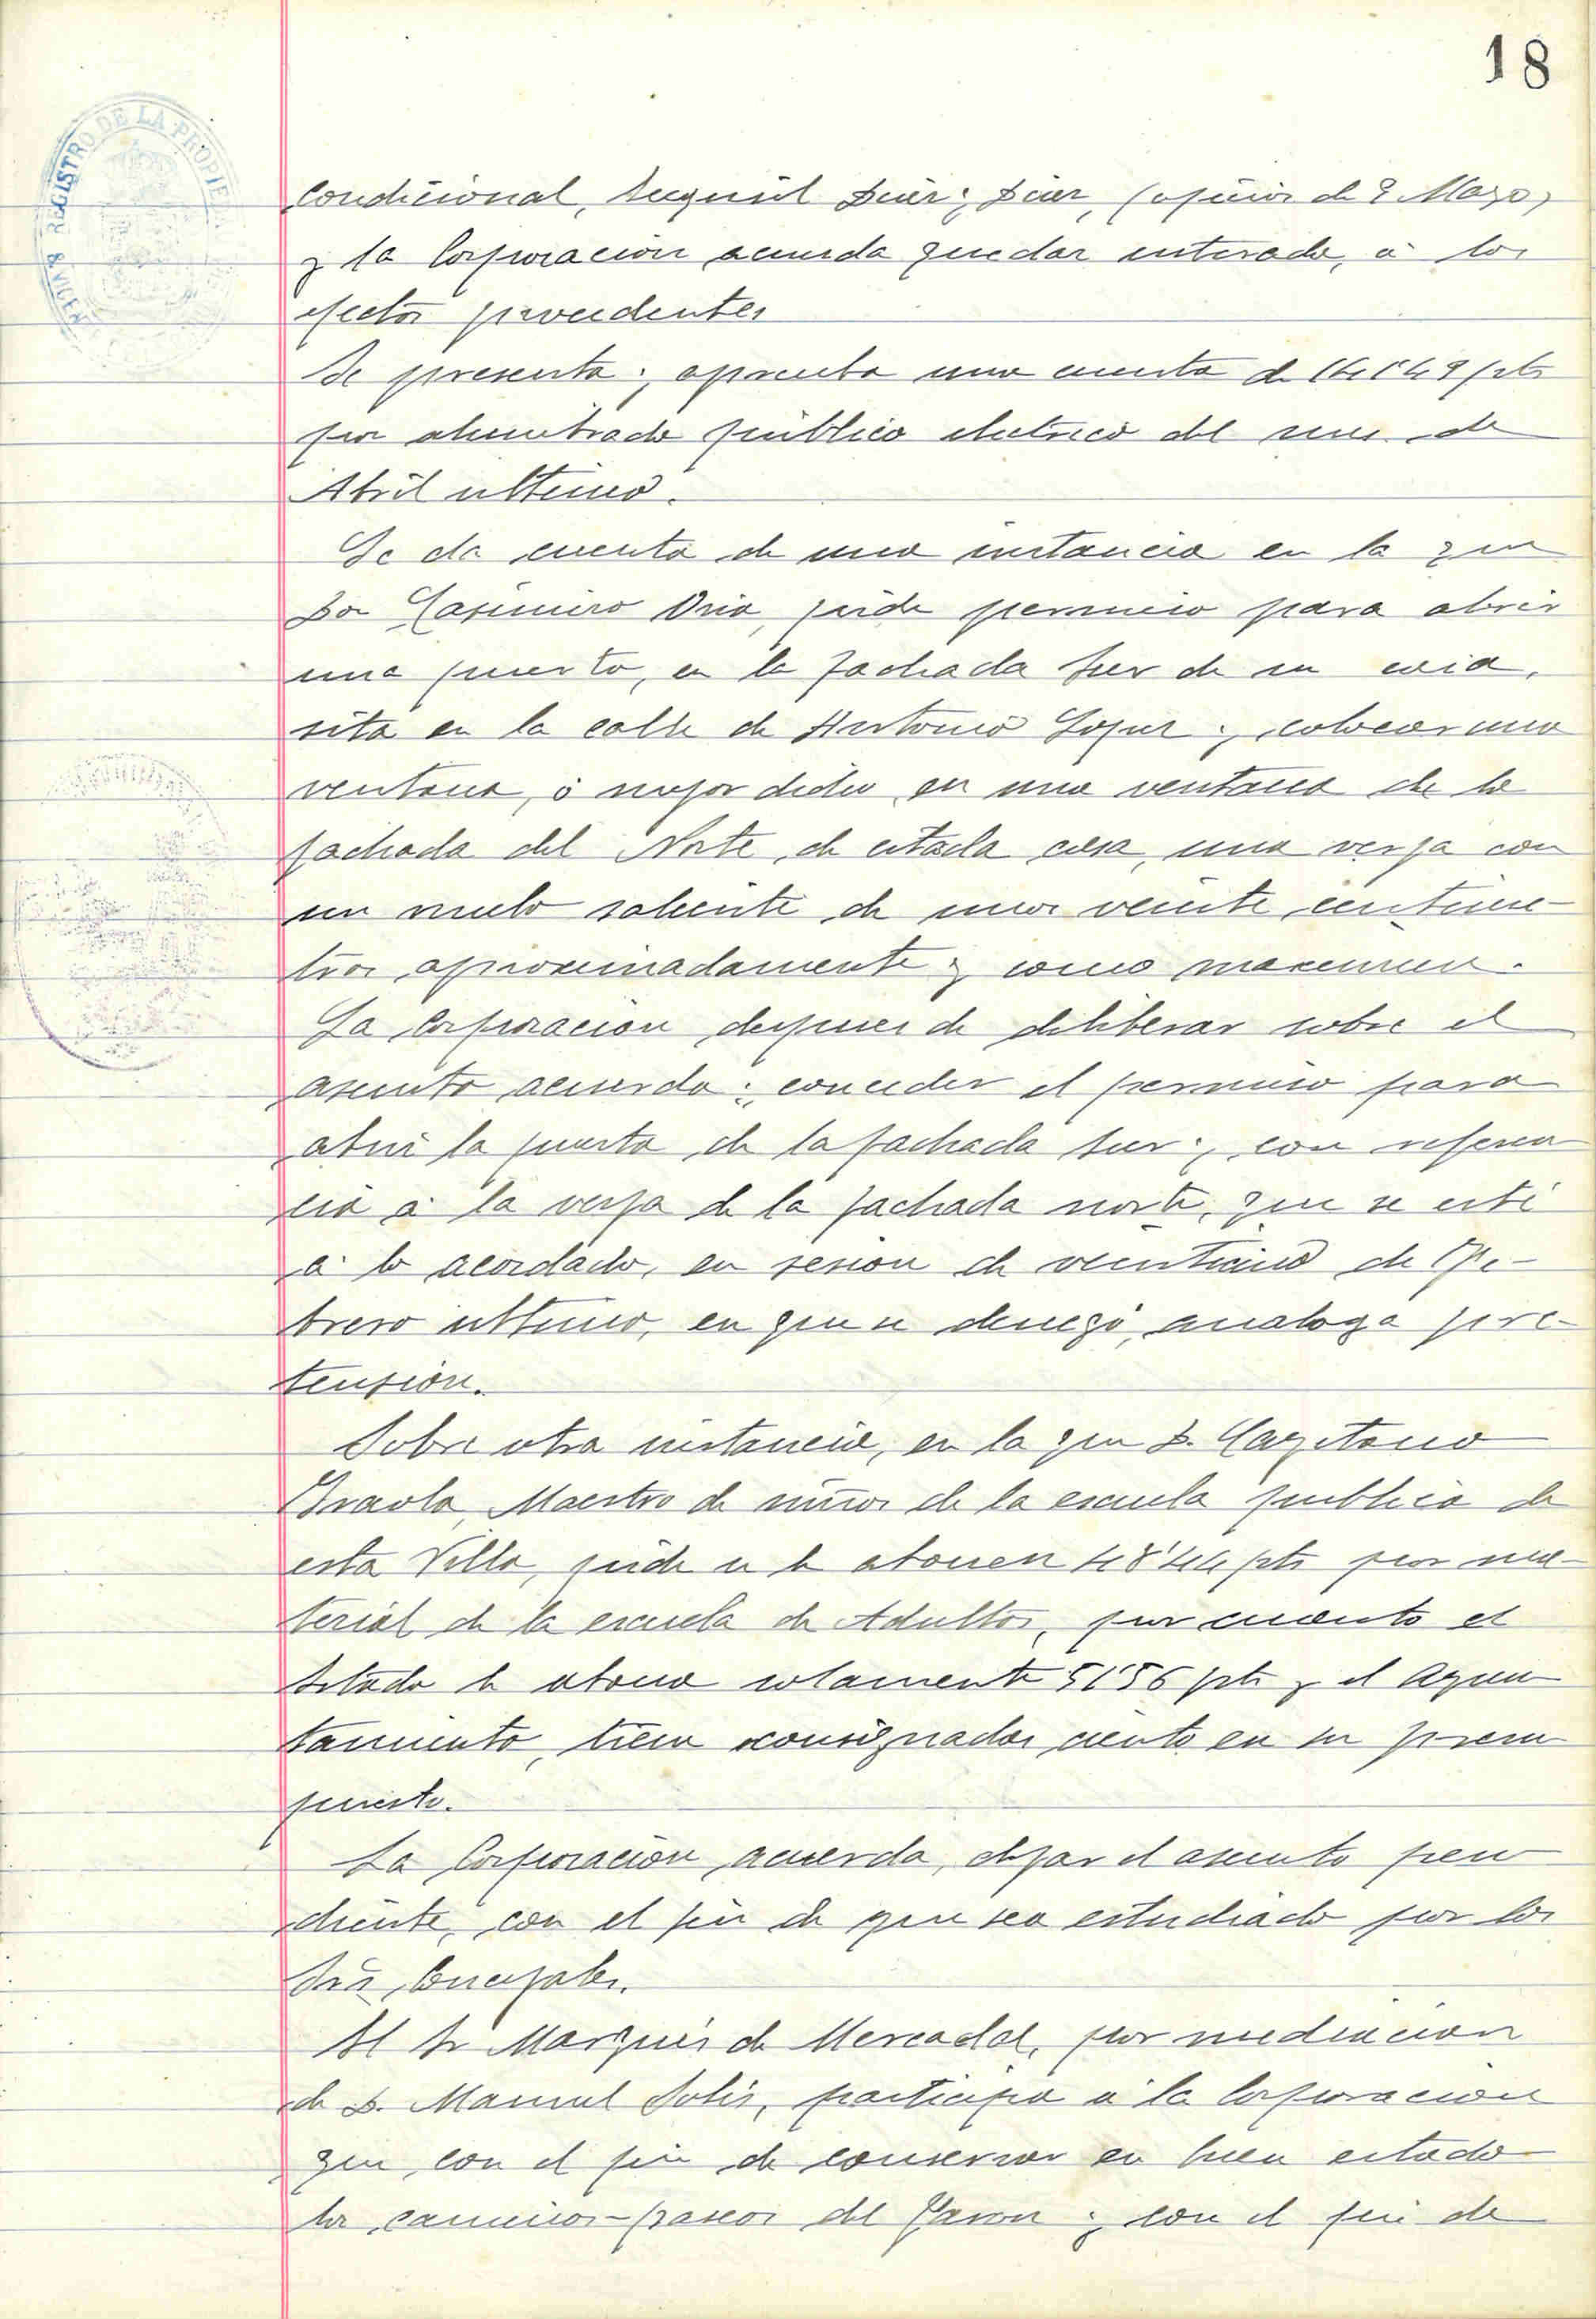 18
REGISTRO DE LA PROPIE
condicional, (oficio de 9 Mayo)
y la Corporacion acuerda quedar enterada, a los
efectos procedentes
Se presenta y aprueba una cuenta de pts
por alumbrado público electrico del mes de
Abril ultimo.
Se da cuenta de una instancia en la que
Don Casimiro pide permiso para abrir
una puerta, en la fachada Sur de su casa,
sita en la calle de Antonio Lopez y colocar una
ventana, ó mejor dicho en una ventana de la
fachada del Norte, de citada casa, una verja con
un vuelo saliente de unos veinte centime-
tros aproximadamente y como maximun.
La Corporacion despues de deliberar sobre el
asunto acuerda: conceder el permiso para
abrir la puerta de la fachada Sur y con referen
cia a la verja de la fachada norte, que se esté
a lo acordado, en sesion de de Fe-
brero ultimo, en que se denegó analoga pre-
tensión.
Sobre otra instancia, en la que D. Cayetano
Maestro de niños de la escuela publica de
esta Villa, pide se le abonen 48'44 pts por ma-
terial de la escuela de Adultos, por cuanto el
Estado le abona solamente 51'56 pts y el Ayun
tamiento, tiene consignadas ciento en su presu
puesto.
La Corporacion acuerda, dejar el asunto pen
diente, con el fin de que sea estudiado por los
Srs Concejales.
El Sr Marqués de Mercadal, por mediacion
de D. Manuel Solis, participa a la Corporacion
que con el fin de conservar en buen estado
los caminos-paseos del y con el fin de